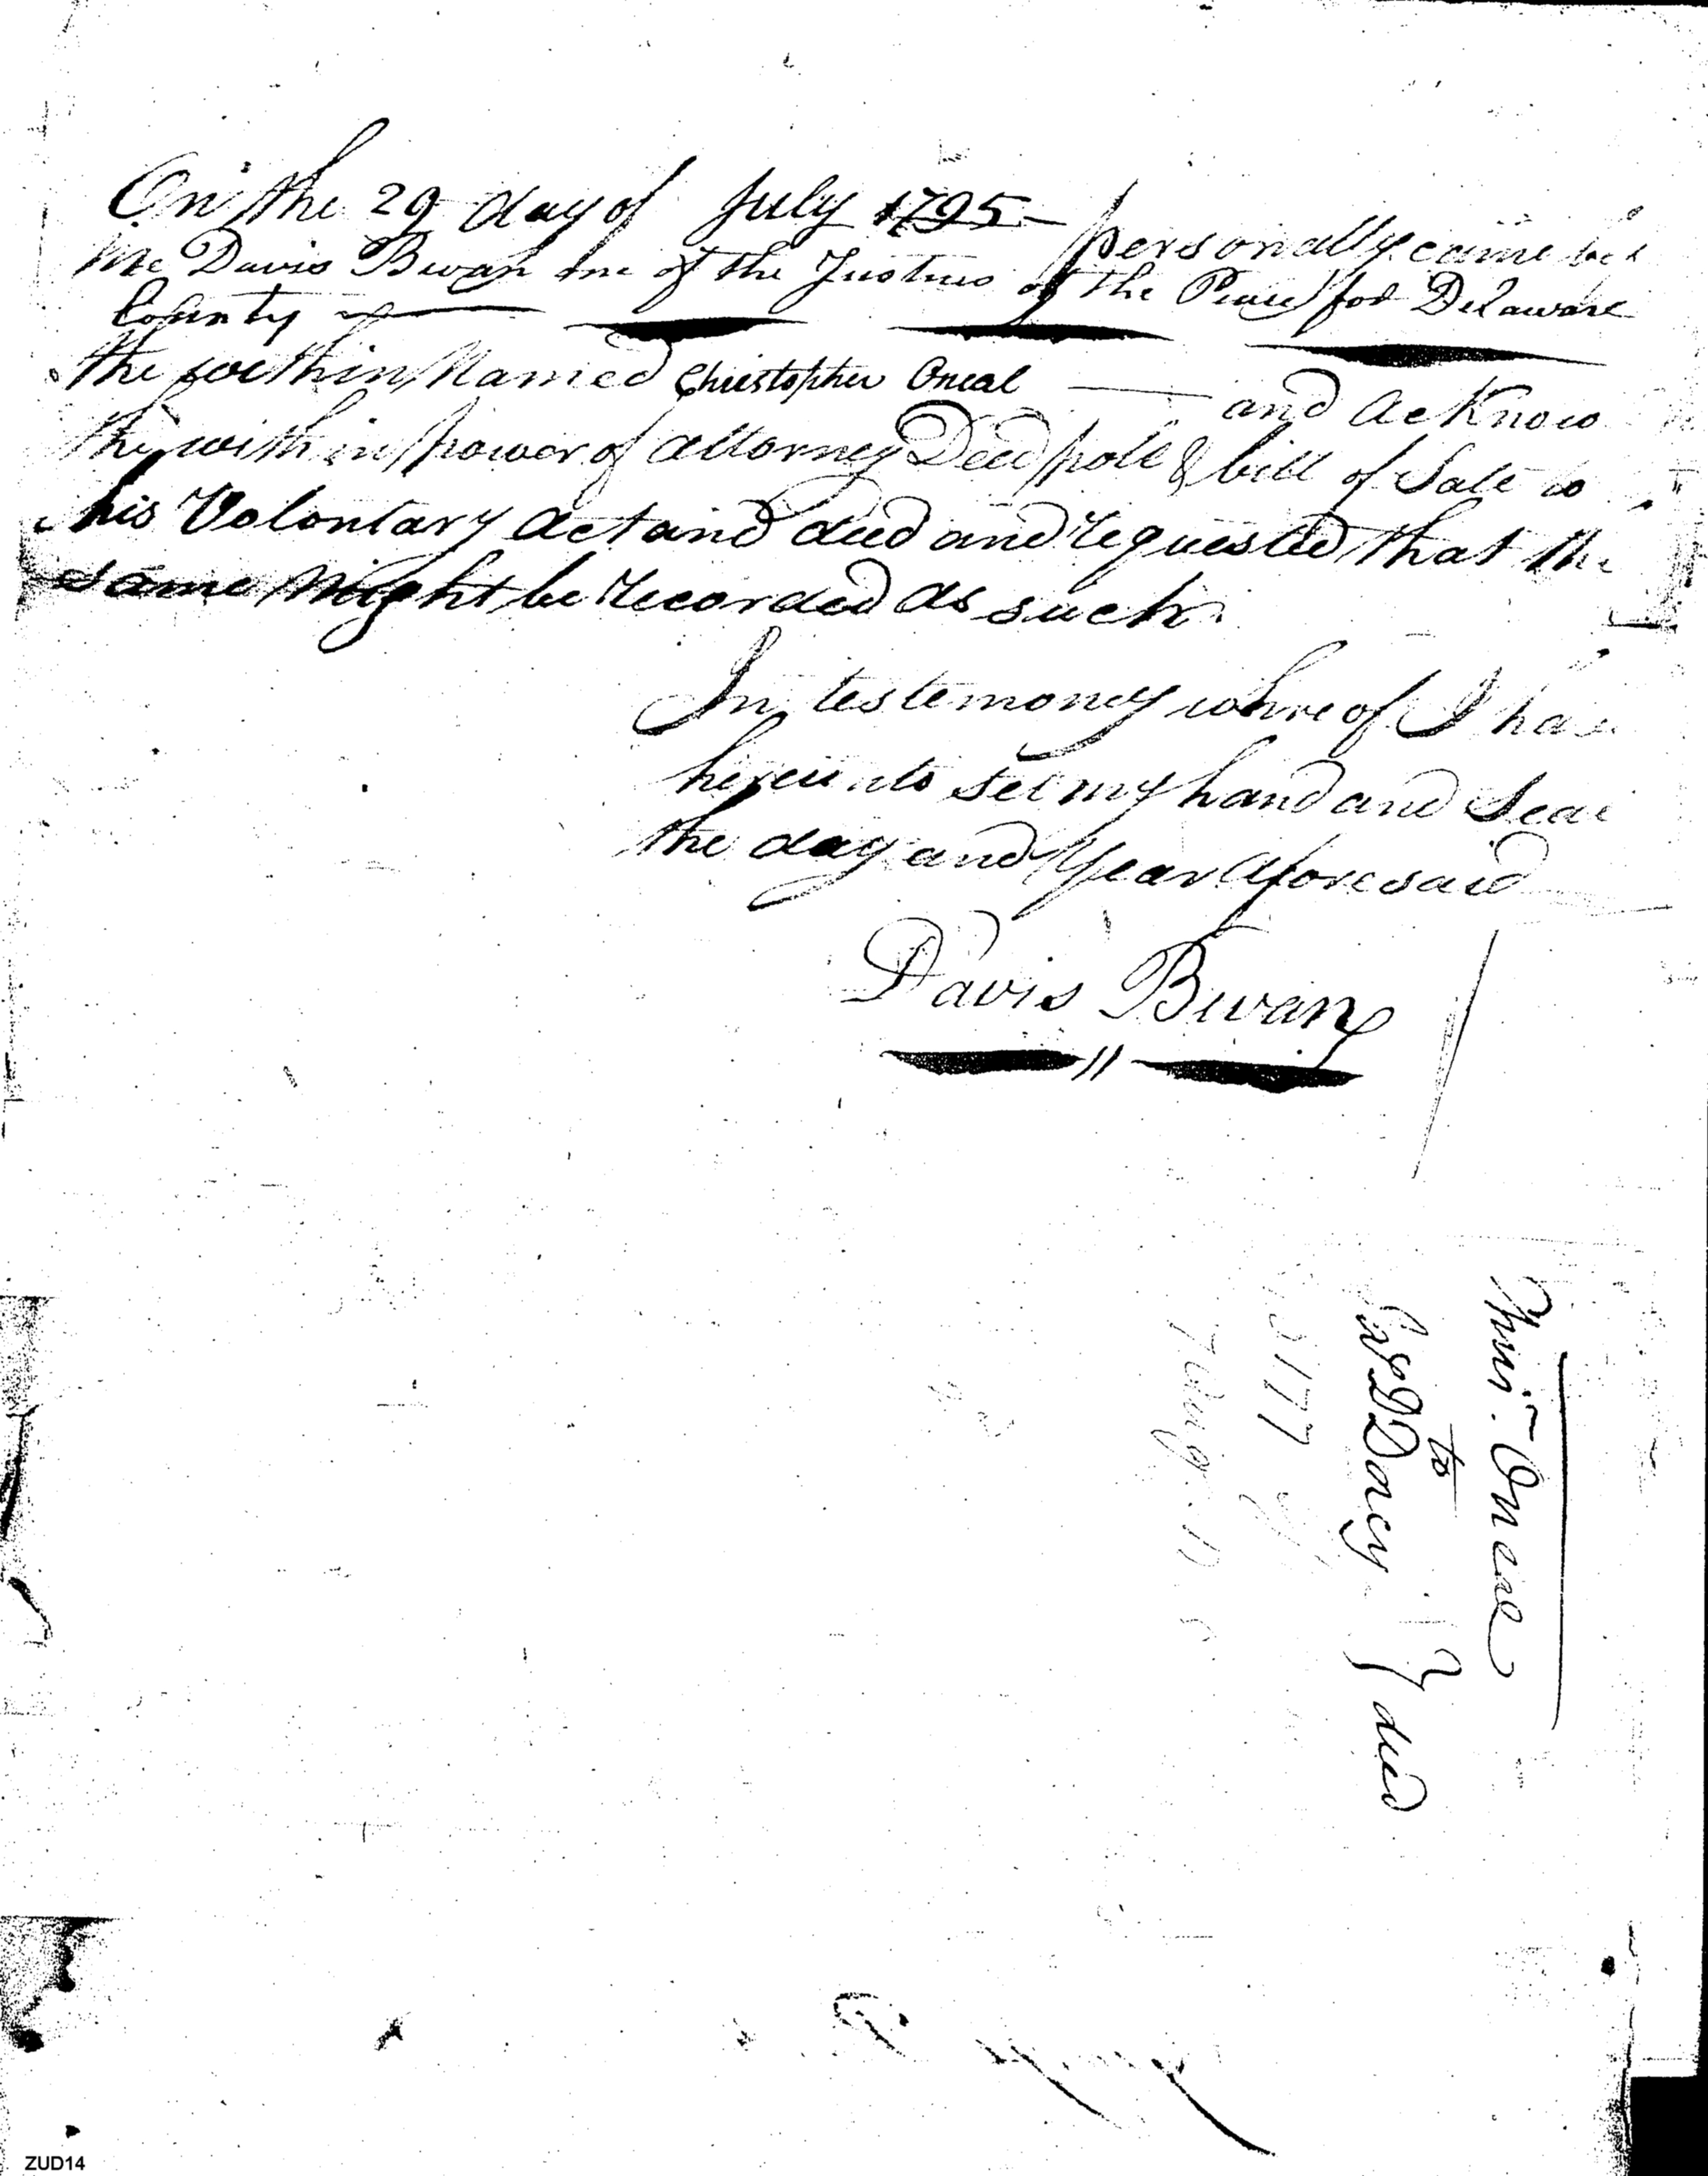 On the 29 day of July 1795 — personally came bef
Me Davis Bevan one of the Justices of the Peace for Delaware
County
the within Named Christopher Oneal — and acknow
the within power of attorney Deed poll & bill of Sale to
his Volontary act and deed and requested that the
same Might be recorded as such.
In testemoney whreof I have
hereunto set my hand and Seal
the day and Year aforesaid
Davis Bevan
Chris. Oneal
to
Dancy } deed
ZUD14